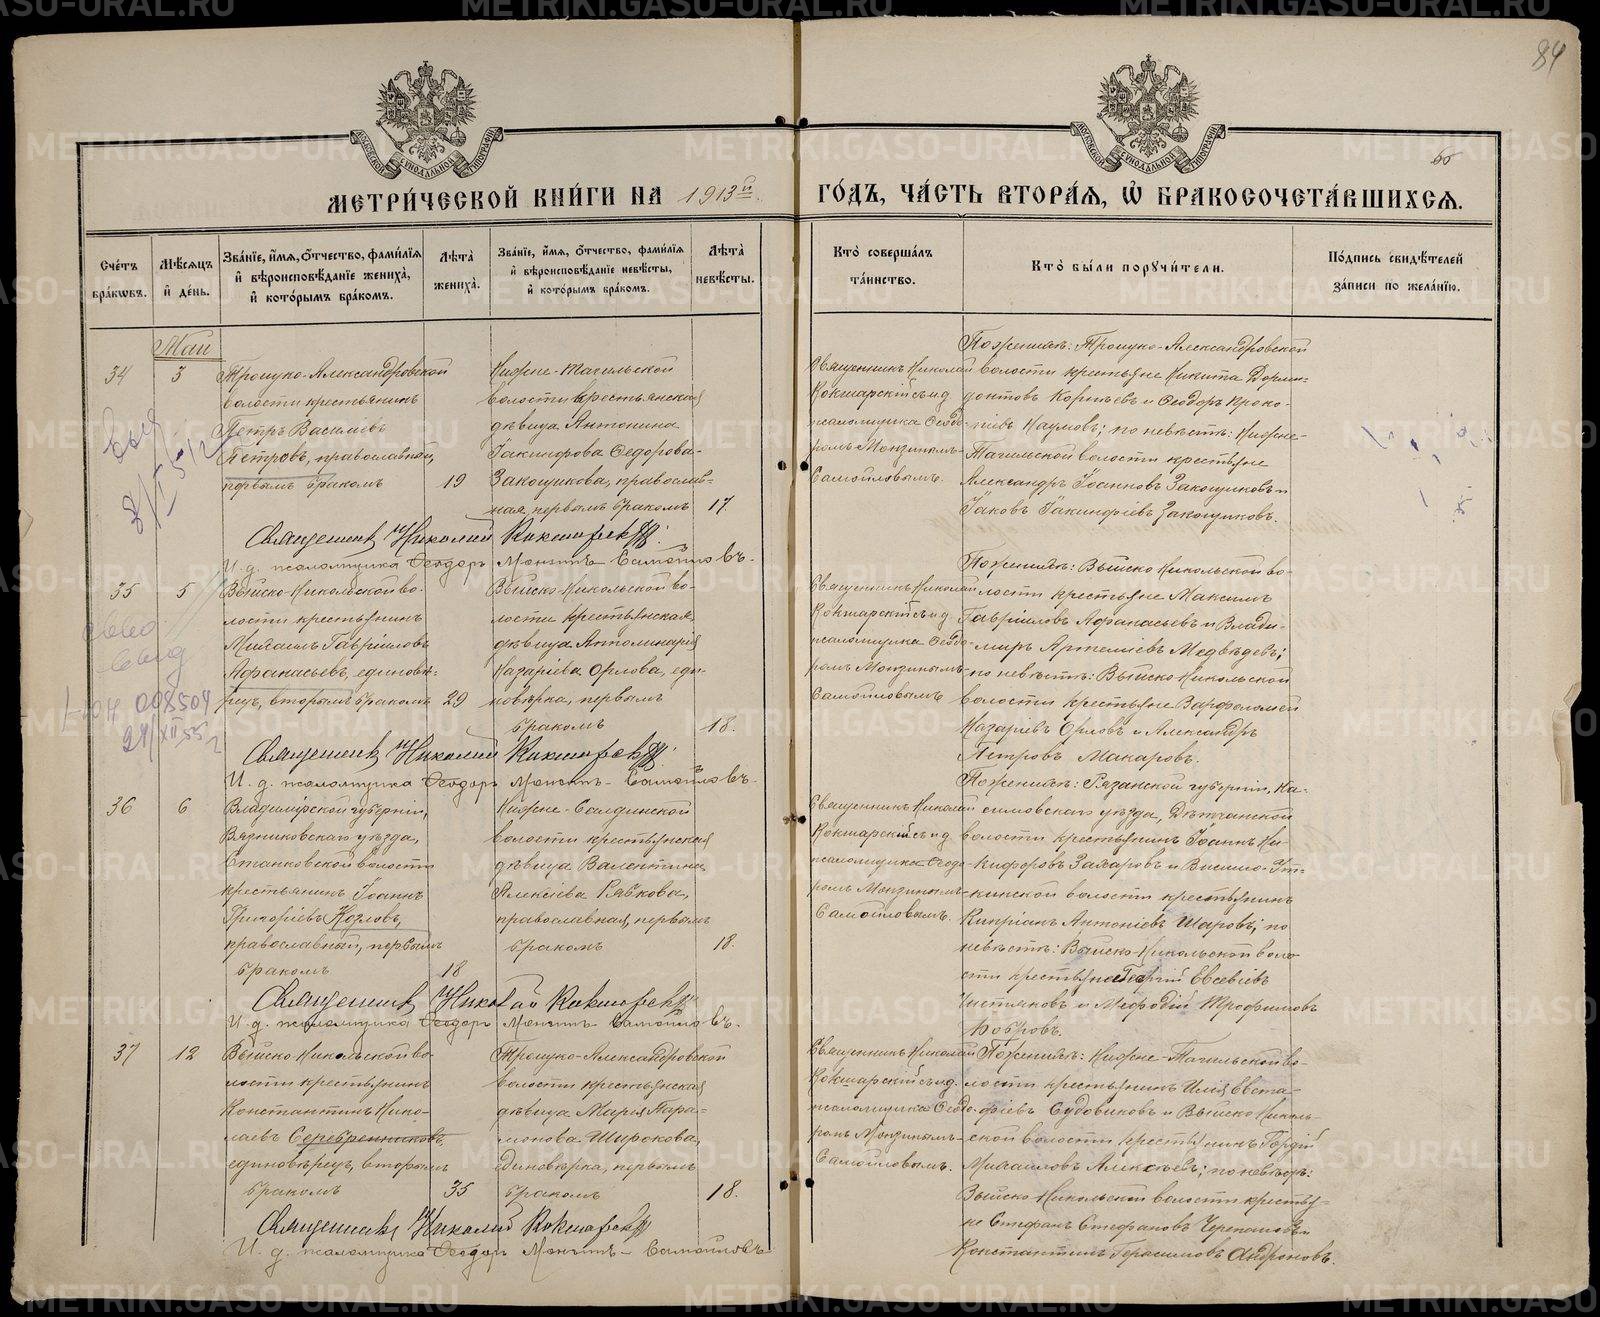 84
66
МОСКОВСКОЙ СУНОДАЛЬНОЙ ТИПОГРАФІИ
МОСКОВСКОЙ СУНОДАЛЬНОЙ ТИПОГРАФІИ
МЕТРИ́ЧЕСКОЙ КНИ́ГИ НА 1913й ГО́ДЪ, ЧА́СТЬ ВТОРА́Я, Ѡ҆ БРАКОСОЧЕТА́ВШИХСЯ.
Сче́тъ бра́кѡвъ.
Мѣ́сяцъ и҆ де́нь.
Зва́нїе, и҆́мя, ѻ҆́тчество, фами́лїя и҆ вѣроисповѣ́данїе жениха̀, и҆ кото́рымъ бра́комъ.
Лѣ́та жениха̀.
Зва́нїе, и҆́мя, ѻ҆́тчество, фами́лїя и҆ вѣроисповѣ́данїе невѣ́сты, и҆ кото́рымъ бра́комъ.
Лѣ́та невѣ́сты.
Кто̀ соверша́лъ та́инство.
Кто̀ бы́ли порꙋчи́тели.
По́дпись свидѣ́телей за́писи по жела́нїю.
Май
34
3
Троицко-Александровской
волости крестьянинъ
Петръ Василіевъ
Петровъ, православный,
первымъ бракомъ
19
Нижне-Тагильской
волости крестьянская
дѣвица Антонина
Іакинфова Ѳедорова-
Закощикова, православ-
ная, первымъ бракомъ
17.
Священникъ Николай
Кокшарскій съ и. д.
псаломщика Ѳеодо-
ромъ Монзинымъ-
Самойловымъ.
По женихѣ: Троицко-Александровской
волости крестьяне Никита Дормен-
донтовъ Корнѣевъ и Ѳеодоръ Проко-
піевъ Наумовъ; по невѣстѣ: Нижне-
Тагильской волости крестьяне
Александръ Іоанновъ Закощиковъ и
Іаковъ Іакинфіевъ Закощиковъ.
Священникъ Николай Кокшарскій.
И. д. псаломщика Ѳеодоръ Монзинъ-Самойловъ.
35
5
Выйско-Никольской во-
лости крестьянинъ
Михаилъ Гавріиловъ
Аѳанасьевъ, единовѣ-
рецъ, вторымъ бракомъ
29
Выйско-Никольской во-
лости крестьянская
дѣвица Аполлинарія
Назаріева Орлова, еди-
новѣрка, первымъ
бракомъ
18.
Священникъ Николай
Кокшарскій съ и. д.
псаломщика Ѳеодо-
ромъ Монзинымъ-
Самойловымъ
По женихѣ: Выйско-Никольской во-
лости крестьяне Максимъ
Гавріиловъ Аѳанасьевъ и Влади-
миръ Артеміевъ Медвѣдевъ;
по невѣстѣ: Выйско-Никольской
волости крестьяне Варѳоломей
Назаріевъ Орловъ и Александръ
Петровъ Макаровъ.
Священникъ Николай Кокшарскій.
И. д. псаломщика Ѳеодоръ Монзинъ-Самойловъ.
008504
36
6
Владимірской губерніи,
Вязниковскаго уѣзда,
Станковской волости
крестьянинъ Іоаннъ
Григоріевъ Козловъ,
православный, первымъ
бракомъ
18
Нижне-Салдинской
волости крестьянская
дѣвица Валентина
Алексіева Рябкова,
православная, первымъ
бракомъ
18.
Священникъ Николай
Кокшарскій съ и. д.
псаломщика Ѳеодо-
ромъ Монзинымъ-
Самойловымъ.
По женихѣ: Рязанской губерніи, Ка-
симовскаго уѣзда,
волости крестьянинъ Іоаннъ Ни-
кифоровъ Захаровъ и Висимо-Ут-
кинской волости крестьянинъ
Кипріанъ Антоніевъ Шаровъ; по
невѣстѣ: Выйско-Никольской воло-
сти крестьяне Георгій Евсевіевъ
Чистяковъ и Меѳодій Трофимовъ
Бобровъ.
Священникъ Николай Кокшарскій
И. д. псаломщика Ѳеодоръ Монзинъ-Самойловъ.
37
12
Выйско-Никольской во-
лости крестьянинъ
Константинъ Нико-
лаевъ Серебренниковъ,
единовѣрецъ, вторымъ
бракомъ
35
Троицко-Александровской
волости крестьянская
дѣвица Марія Пара-
монова Широкова,
единовѣрка, первымъ
бракомъ
18.
Священникъ Николай
Кокшарскій съ и. д.
псаломщика Ѳеодо-
ромъ Монзинымъ-
Самойловымъ.
По женихѣ: Нижне-Тагильской во-
лости крестьянинъ Илія Евста-
фіевъ Судовиковъ и Выйско-Николь-
ской волости крестьянинъ Гордій
Михаиловъ Алексѣевъ; по невѣстѣ:
Выйско-Никольской волости крестья-
не Стефанъ Стефановъ Черепановъ и
Константинъ Герасимовъ Андроновъ.
Священникъ Николай Кокшарскій
И. д. псаломщика Ѳеодоръ Монзинъ-Самойловъ
METRIKI.GASO-URAL.RU